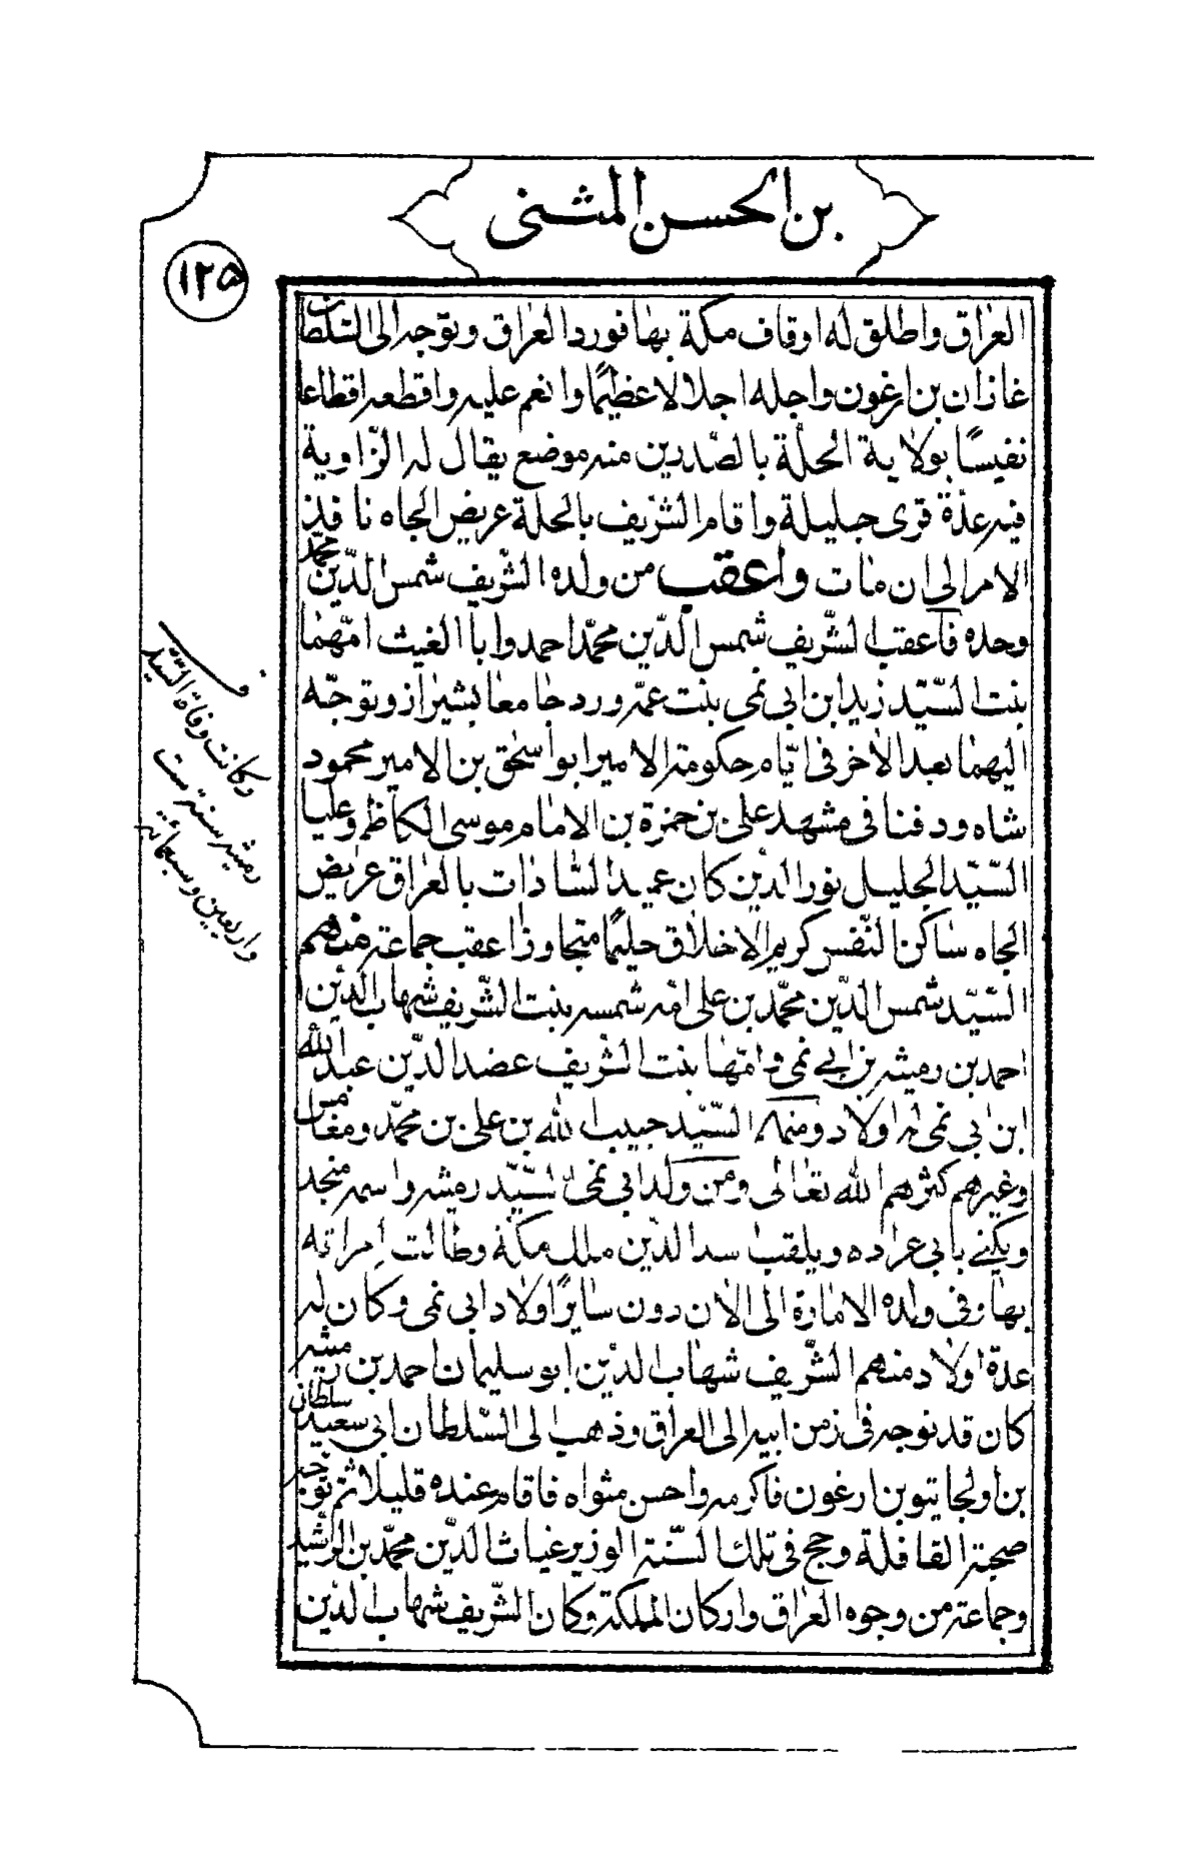 بن الحسن المثنى
١٢٥
العراق واطلق له اوقاف مكة بها فورد العراق وتوجه الى السلطان
غازان بن ارغون واجله اجلالا عظيمًا وانعم عليه واقطعه اقطاعا
نفيسًا بولاية الحلة بالصدرين منه موضع يقال له الزاوية
فيه عدّة قرى جليلة واقام الشريف بالحلة عريض الجاه نافذ
الامر الى ان مات واعقب من ولده الشريف شمس الدّين محمّد
وحده فاعقب الشّريف شمس الدّين محمّد احمد وابا الغيث امّهما
بنت السّيّد زيد ابن ابي نمى بنت عمّه ورد جامعا بشيراز وتوجّه
اليهما بعد الاخر في ايّام حكومة الامير ابو اسحٰق بن الامير محمود
شاه ودفنا في مشهد على بن حمزة بن الامام موسى الكاظم وعليا
السّيّد الجليل نور الدين كان عميد السّادات بالعراق عريض
الجاه ساكن النّفس كريم الاخلاق حليمًا متجاوزا عقب جماعة منهم
السّيّد شمس الدّين محمّد بن على امّه شمسه بنت الشّريف شهاب الدّين
احمد بن رميثه بن ابي نمى وامّها بنت الشّريف عضد الدّين عبد الله
ابن ابي نمى له اولاد ومنهم السّيّد حبيب الله بن على بن محمّد ومغامس
وغيرهم كثّرهم الله تعالى ومن ولد ابي نمى السّيّد رميثه واسمه منجد
ويكنى بابي عراده ويلقب اسد الدّين ملك مكّة وطالت امراته
بها وفي ولده الامارة الى الان دون سايرا اولاد ابي نمى وكان له
عدّة اولاد منهم الشّريف شهاب الدّين ابو سليمان احمد بن رميثه
كان قد توجه في زمن ابيه الى العراق وذهب الى السّلطان ابي سعيد سلطان
بن اولجايتو بن ارغون فاكرمه واحسن مثواه فاقام عنده قليلا ثم توجه
صحبة القافلة وحج في تلك السّنة الوزير غياث الدّين محمّد بن الرّشيد
وجماعة من وجوه العراق واركان المملكة وكان الشّريف شهاب الدّين
وكانت وفاة السّيد
رميثه سنة ست
واربعين وسبعمائه